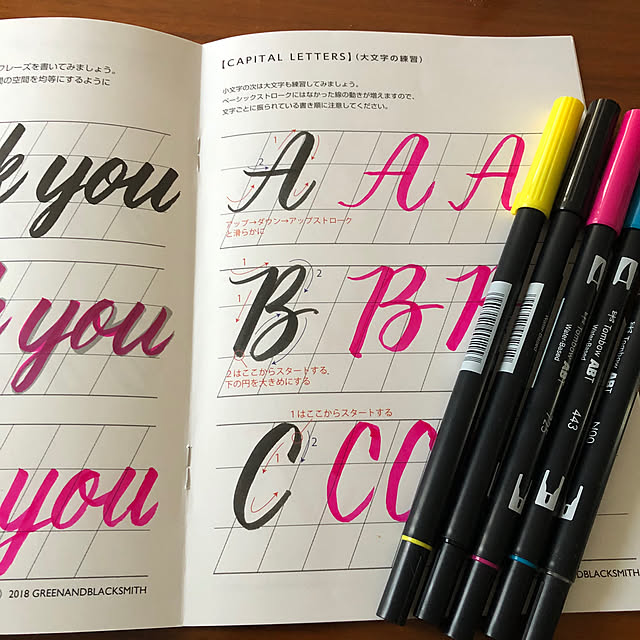 フレーズを書いてみましょう。
の空間を均等にするように
k you
you
you
2018 GREENANDBLACKSMITH
【CAPITAL LETTERS】(大文字の練習)
小文字の次は大文字も練習してみましょう。
ベーシックストロークにはなかった線の動きが増えますので、
文字ごとに振られている書き順に注意してください。
1
2
A A A
アップ→ダウン→アップストローク
と滑らかに
1
2
1
B B
2はここからスタートする。
下の円を大きめにする
1はここからスタートする
1
2
C C C
DBLACKSMITH
Tombow ABT
Water-Based
Tombow ABT
Water-Based
725
443
N00